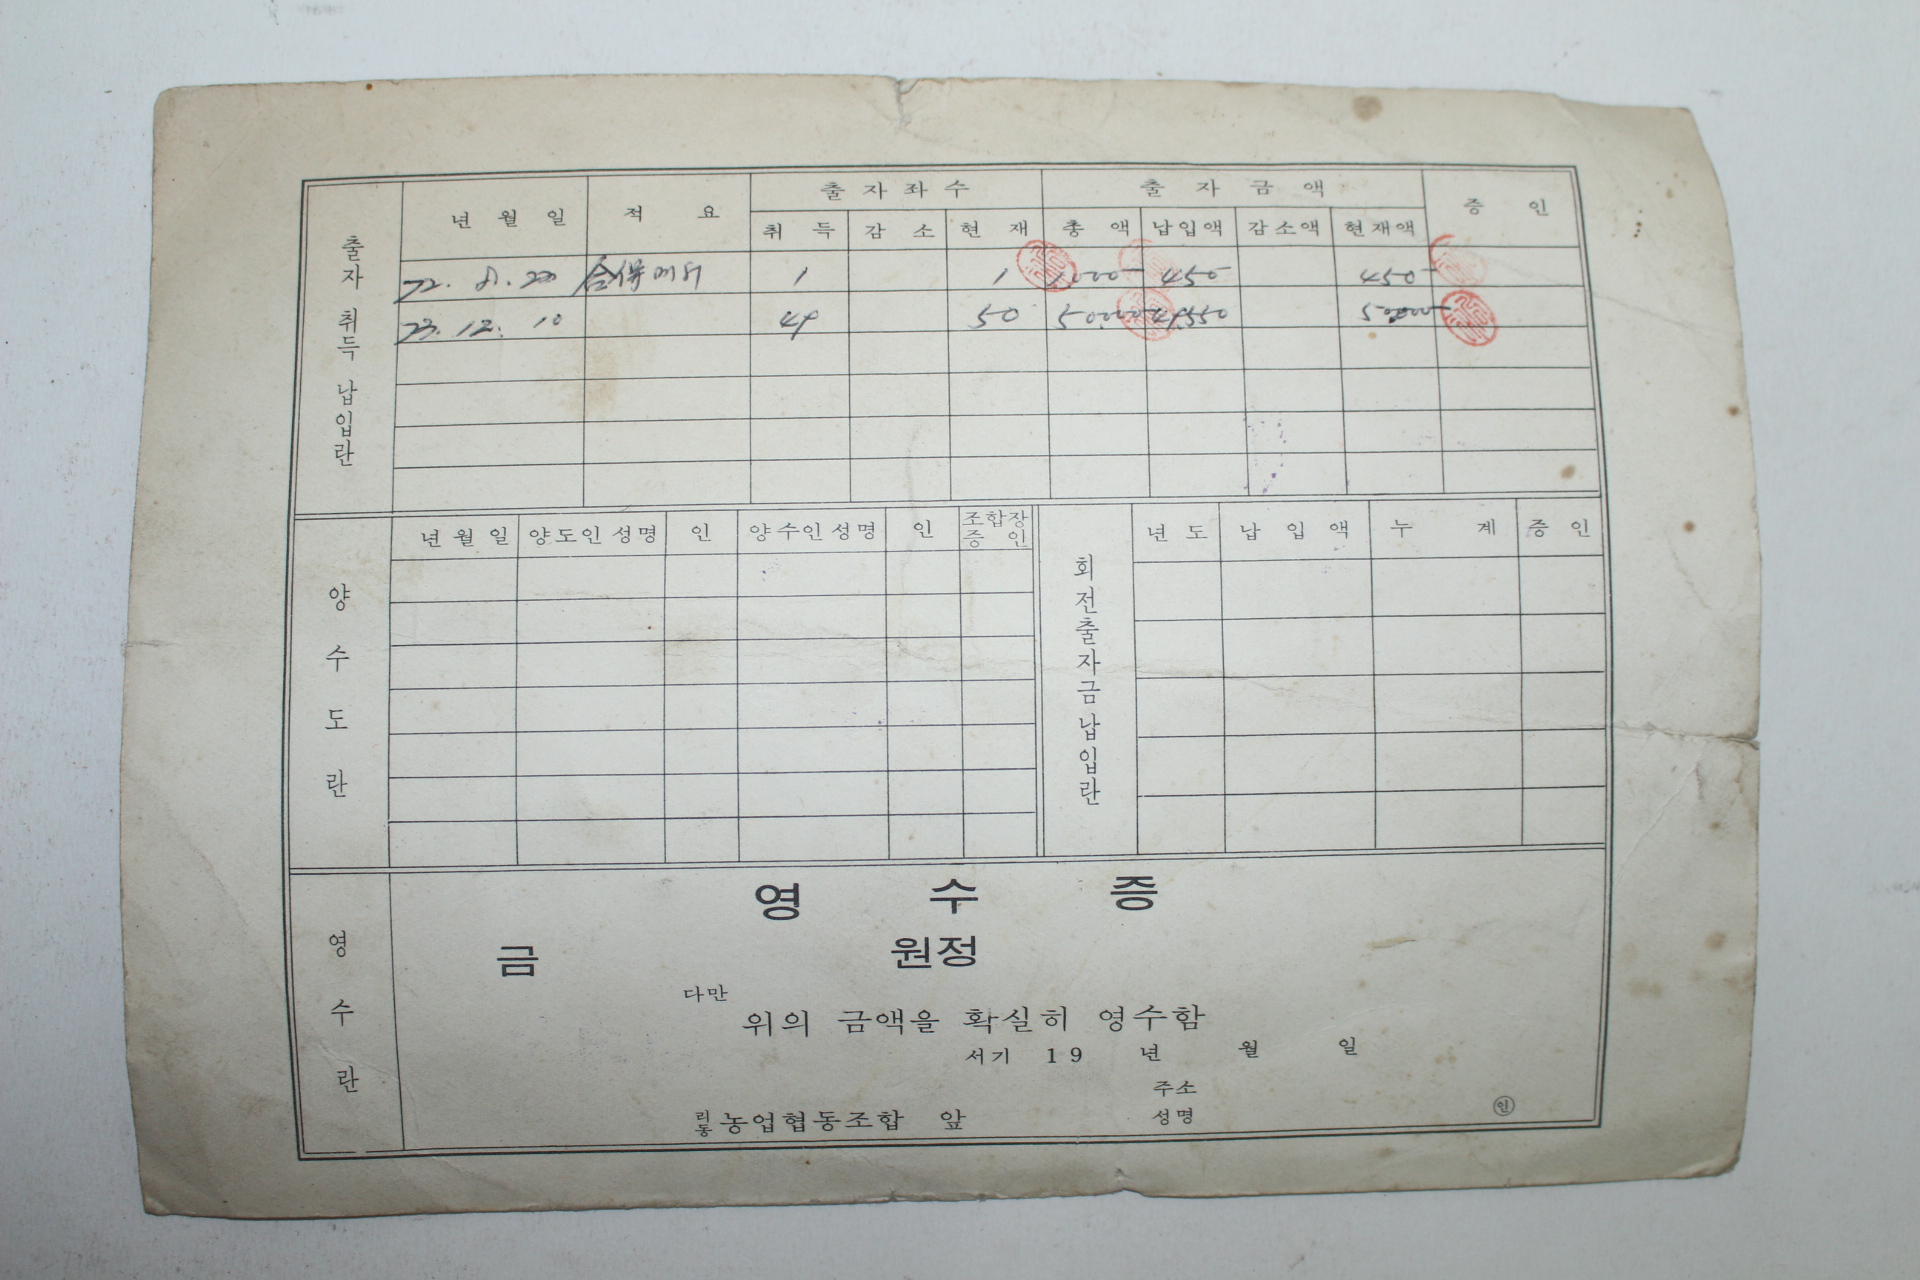 출자취득납입란
년 월 일 적 요 출자좌수 출자금액 증 인
취 득 감 소 현 재 총 액 납입액 감소액 현재액
72. 8. 20 1 1 450 450
73. 12. 10 49 50 49550
양수도란
년월일 양도인 성명 인 양수인 성명 인 조합장 증 인
회전출자금납입란
년 도 납 입 액 누 계 증 인
영수란
영 수 증
금 원정
다만
위의 금액을 확실히 영수함
서기 19 년 월 일
주소
리동 농업협동조합 앞 성명 인